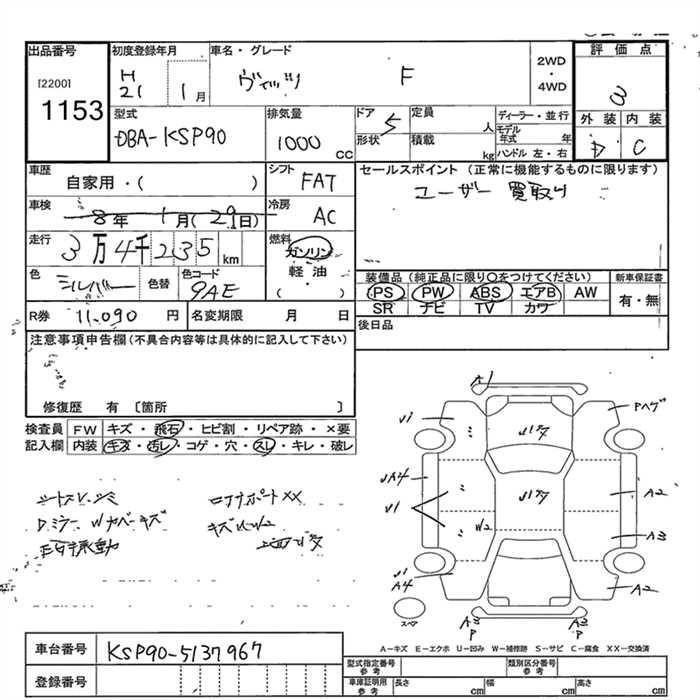 出品番号 初度登録年月 車名・グレード 評価点
[2200] H 21 1月 ヴィッツ F 2WD・4WD 3
1153 型式 排気量 ドア 5 定員 人 ディーラー・並行 外装 内装
DBA-KSP90 1000 cc 形状 積載 kg モデル年式 年 C
ハンドル 左・右
車歴 シフト セールスポイント (正常に機能するものに限ります)
自家用・( ) FAT ユーザー買取り
車検 8年 1月(29日) 冷房 AC
走行 3万4千235km 燃料 ガソリン
軽油
( )
色 シルバー 色替 色コード 9AE 装備品(純正品に限り○をつけてください) 新車保証書
PS PW ABS エアB AW 有・無
SR ナビ TV カワ
R券 11,090 円 名変期限 月 日 後日品
注意事項申告欄(不具合内容等は具体的に記入して下さい)
修復歴 有 〔箇所 〕
検査員 FW キズ・飛石・ヒビ割・リペア跡・×要
記入欄 内装 キズ・汚レ・コゲ・穴・スレ・キレ・破レ
A1
U1 Pハゲ
UA4 A2
U1 W2 A3
U1 A4 A2
A3 P A3 P
スペア
A－キズ E－エクボ U－凹み W－補修跡 S－サビ C－腐食 XX－交換済
車台番号 KSP90-5137967
登録番号
型式指定番号 参考 類別区分番号 参考
車庫証明用 参考 長さ cm 幅 cm 高さ cm